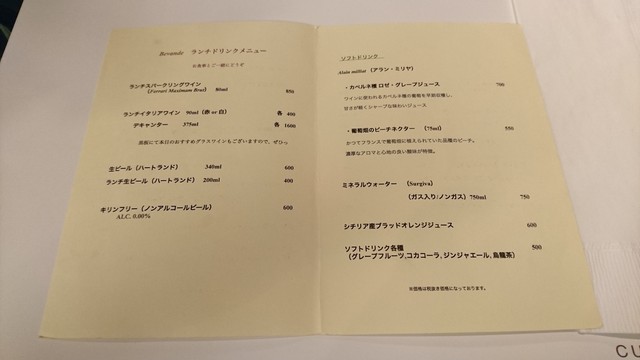 Bevande ランチドリンクメニュー
お食事とご一緒にどうぞ
ランチスパークリングワイン
(Ferrari Maximum Brut) 80ml 850
ランチイタリアワイン 90ml（赤 or 白） 各 400
デキャンター 375ml 各 1600
黒板にて本日のおすすめグラスワインもございますので、ぜひっ
生ビール（ハートランド） 340ml 600
ランチ生ビール（ハートランド） 200ml 400
キリンフリー（ノンアルコールビール） 600
ALC. 0.00%
ソフトドリンク
Alain milliat（アラン・ミリヤ）
・カベルネ種 ロゼ・グレープジュース 700
ワインに使われるカベルネ種の葡萄を早期収穫し、
甘さが軽くシャープな味わいジュース
・葡萄畑のピーチネクター 550
かつてフランスで葡萄畑に植えられていた品種のピーチ。
濃厚なアロマと心地の良い酸味が特徴。
ミネラルウォーター （Surgiva）
（ガス入り/ノンガス）750ml 750
シチリア産ブラッドオレンジジュース 600
ソフトドリンク各種 500
（グレープフルーツ,コカコーラ、ジンジャエール、烏龍茶）
※価格は税抜き価格になっております。
CU